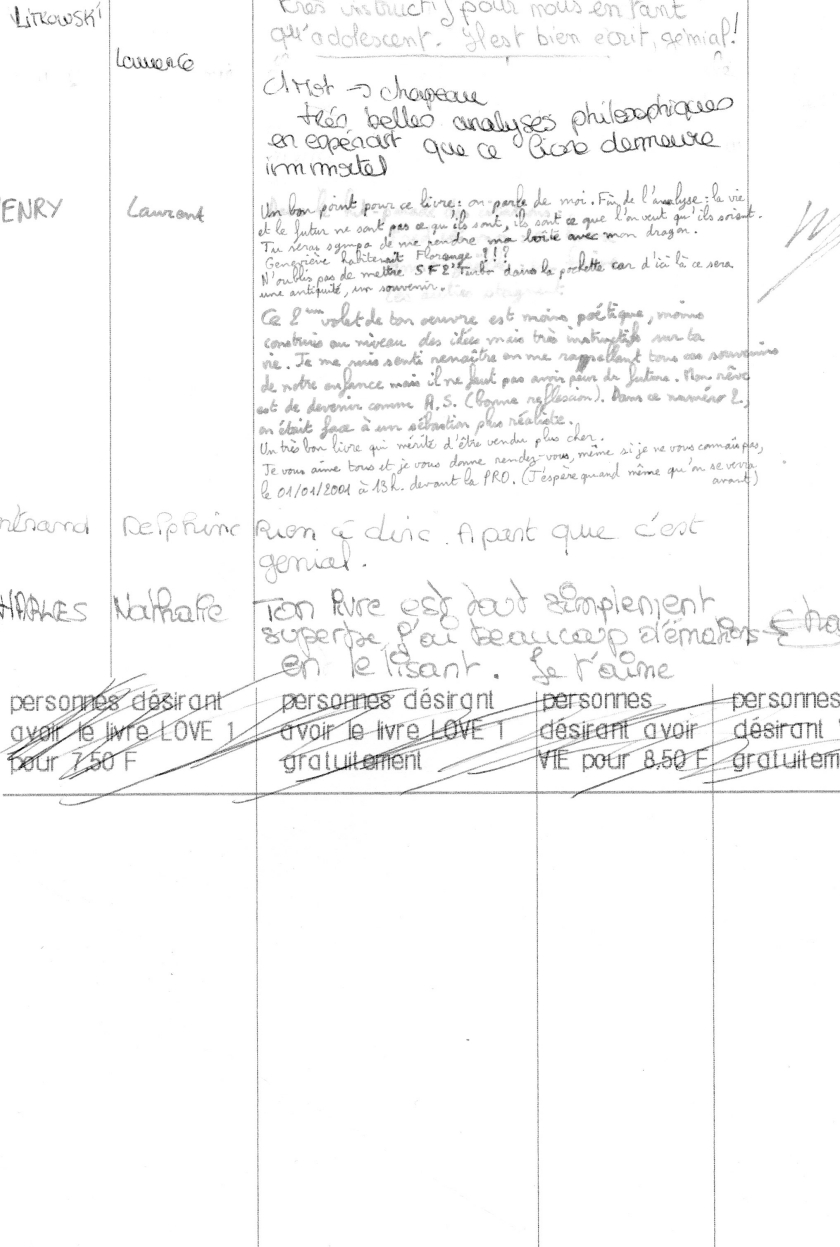 très instructif pour nous en tant
LITKOWSKI
qu'adolescent. Il est bien écrit, génial!
Laurence
1 Mot → chapeau
très belles analyses philosophiques
en espérant que ce livre demeure
immortel
ENRY Laurent Un bon point pour ce livre: on parle de moi. Fin de l'analyse: la vie
et le futur ne sont pas ce qu'ils sont, ils sont ce que l'on veut qu'ils soient.
Tu serais sympa de me rendre ma boîte avec mon dragon.
Geneviève habiterait Florange?!!?
N'oublis pas de mettre SF2 Turbo dans la pochette car d'ici là ce sera
une antiquité, un souvenir.
Ce 2ème volet de ton oeuvre est moins poétique, moins
construis au niveau des idées mais très instructifs sur ta
vie. Je me suis senti renaître en me rappellant tous ces souvenirs
de notre enfance mais il ne faut pas avoir peur du futur. Mon rêve
est de devenir comme A.S. (bonne reflexion). Dans ce numéro 2,
on était face à un sébastien plus réaliste.
Un très bon livre qui mérite d'être vendu plus cher.
Je vous aime tous et je vous donne rendez-vous, même si je ne vous connais pas,
le 01/01/2001 à 13h. devant la PRO. (J'espère quand même qu'on se verra
avant)
Delphine Rien à dire. A part que c'est
génial.
HARLES Nathalie Ton livre est tout simplement
superbe j'ai beaucoup d'émotions
en le lisant. Je t'aime
personnes désirant personnes désirant personnes personnes
avoir le livre LOVE 1 avoir le livre LOVE 1 désirant avoir désirant
pour 7,50 F gratuitement VIE pour 8,50 F gratuitem